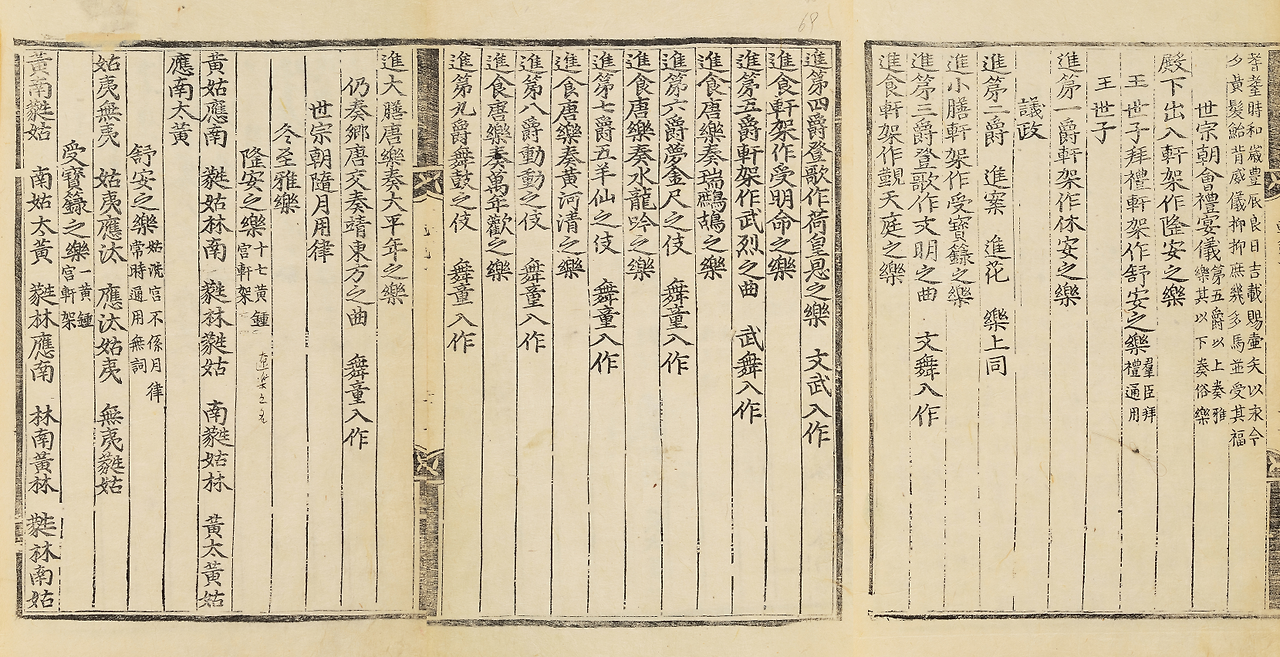 孝奎時和歲豊辰良日吉載賜壷矢以永今
夕黃髮鮐背威儀抑抑庶幾多焉並受其福
世宗朝會禮宴儀第五爵以上奏雅
樂其以下奏俗樂
殿下出入軒架作隆安之樂
王世子拜禮軒架作舒安之樂羣臣拜
禮通用
王世子
進第一爵軒架作休安之樂
議政
進第二爵 進案 進花 樂上同
進小膳軒架作受寶籙之樂
進第三爵登歌作文明之曲 文舞入作
進食軒架作覲天庭之樂
進第四爵登歌作荷皇恩之樂 文武入作
進食軒架作受明命之樂
進第五爵軒架作武烈之曲 武舞入作
進食唐樂奏瑞鷓鴣之樂
進第六爵夢金尺之伎 舞童入作
進食唐樂奏水龍吟之樂
進第七爵五羊仙之伎 舞童入作
進食唐樂奏黃河淸之樂
進第八爵動動之伎 舞童入作
進食唐樂奏萬年歡之樂
進第九爵舞鼓之伎 舞童入作
進大膳唐樂奏太平年之樂
仍奏鄕唐交奏靖東方之曲 舞童入作
世宗朝隨月用律
冬至雅樂
隆安之樂十七黃鍾
宮軒架
黃姑應南 蕤姑林南 蕤林蕤姑 南蕤姑林 黃太黃姑
應南太黃
舒安之樂姑洗宮不係月律
常時通用無詞
姑夷無夷 姑夷應汰 應汰姑夷 無夷蕤姑
受寶籙之樂一黃鍾
宮軒架
黃南蕤姑 南姑太黃 蕤林應南 林南黃林 蕤林南姑
69